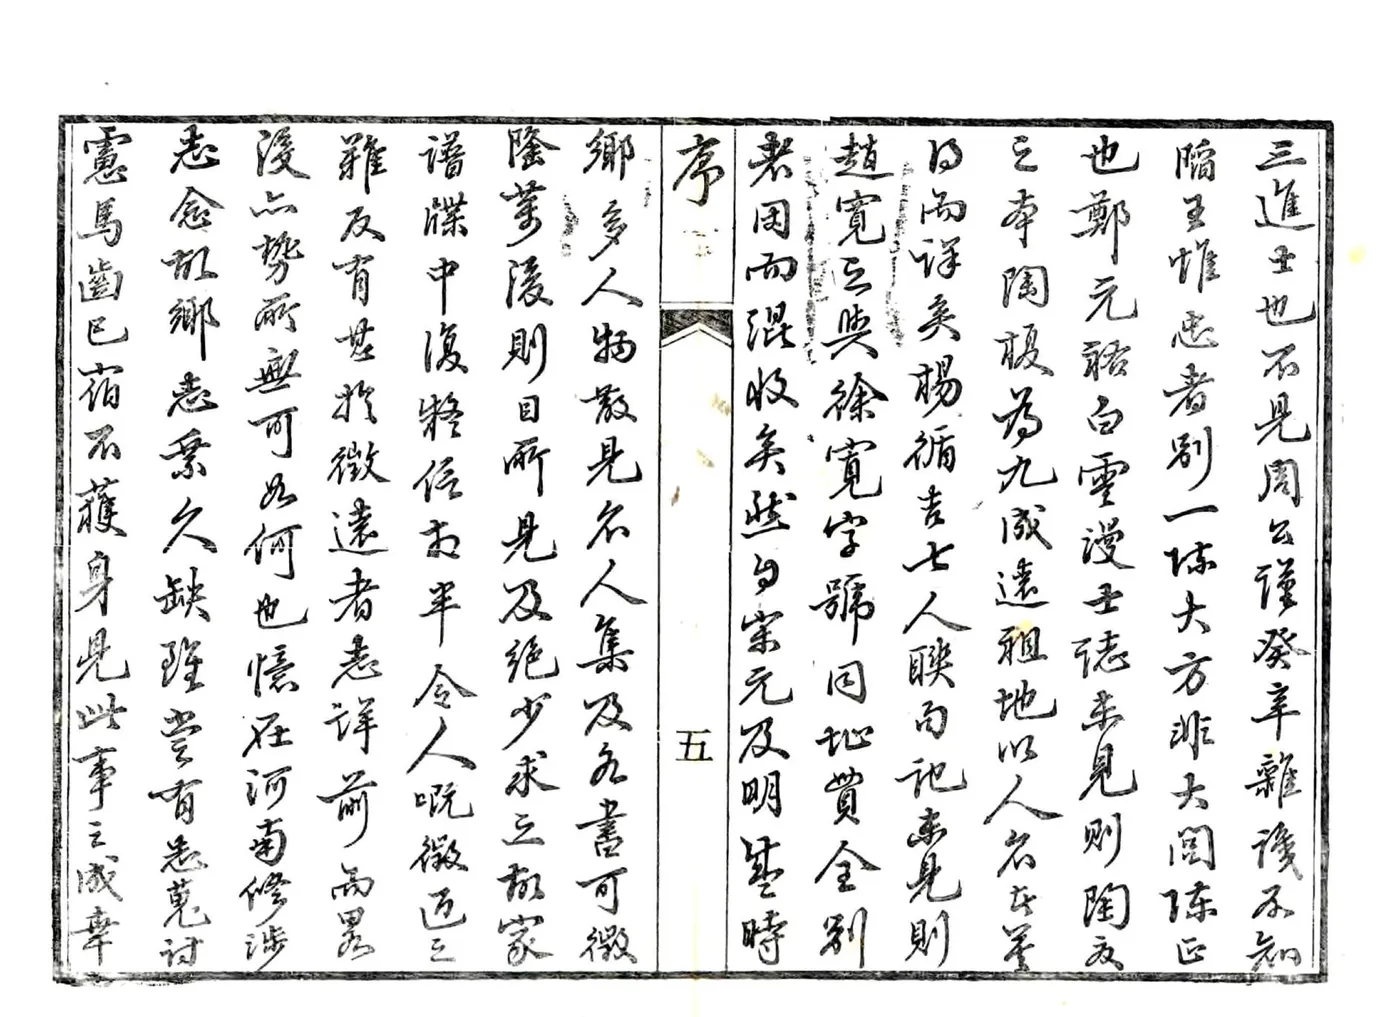 三進士也不見周公謹癸辛雜識不知
陷王惟忠者別一陳大方非大闓陳正
也鄭元祐白雲漫士誌未見則陶友
之本陶複為九成遠祖地以人名其墓
得而詳矣楊循吉七人聯句記未見則
趙寬之與徐寬字號同址費全別
者因而混收矣然自宋元及明盛時
序
五
鄉多人物散見名人集及各書可徵
隆萬後則目所見及絕少求之故家
譜牒中復疑信相半令人嘅徵近之
難反有甚於徵遠者志詳前而畧
後亦勢所無可如何也憶在河南修涉
志念故鄉志乘久缺雖嘗有志蒐討
慮馬齒已宿不獲身見此事之成幸